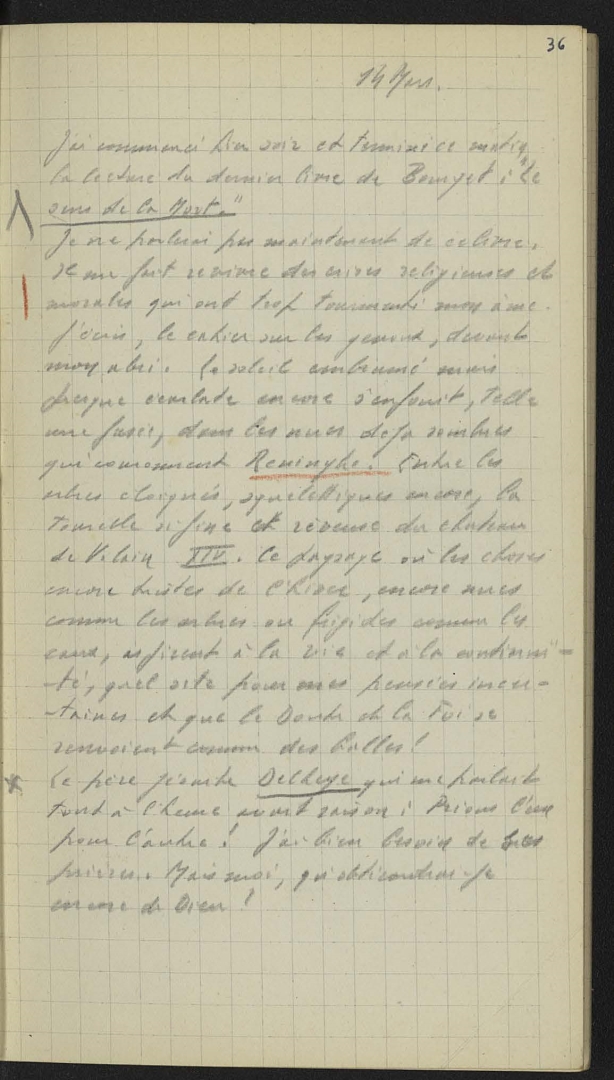 36
14 Mars.
J'ai commencé hier soir et terminé ce matin
la lecture du dernier livre de Bourget : "Le
sens de la Mort."
Je ne parlerai pas maintenant de ce livre.
Il me fait revivre des crises religieuses et
morales qui ont trop tourmenté mon âme.
J'écris, le cahier sur les genoux, devant
mon abri. Le soleil embrumé mais
presque écarlate encore s'enfouit, telle
une fusée, dans les nues déjà sombres
qui couronnent Reninghe. Entre les
arbres éloignés, squelettiques encore, la
tourelle si fine et rêveuse du château
de Vilain XIV. Ce paysage où les choses
encore tristes de l'hiver, encore nues
comme les arbres ou frigides comme les
eaux, aspirent à la vie et à la
-té, quel site pour mes pensées incer-
-taines et que le Doute et la Foi se
renvoient comme des balles !
Le père jésuite Delhaye qui me parlait
tout à l'heure avait raison : Prions l'un
pour l'autre ! J'ai bien besoin de ses
prières. Mais moi, qu'obtiendrai-je
encore de Dieu !